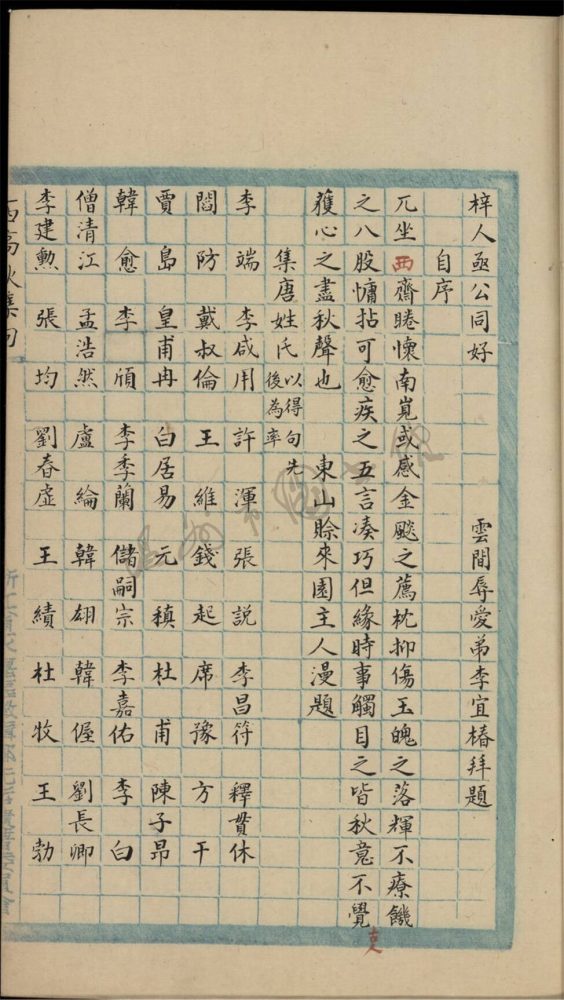 梓人亟公同好　雲間辱愛弟李宜椿拜題
自序
兀坐西齋睠懷南嵬或感金颷之薦枕抑傷玉魄之落輝不療饑
之八股慵拈可愈疾之五言凑巧但緣時事觸目之皆秋意不覺
獲心之盡秋聲也　東山賒來園主人漫題
集唐姓氏以得句先後為率
李端　李咸用　許渾　張説　李昌符　釋貫休
閻防　戴叔倫　王維　錢起　席豫　方干
賈島　皇甫冉　白居易　元稹　杜甫　陳子昂
韓愈　李頎　李季蘭　儲嗣宗　李嘉佑　李白
僧清江　孟浩然　盧綸　韓翃　韓偓　劉長卿
李建勲　張均　劉眘虛　王績　杜牧　王勃